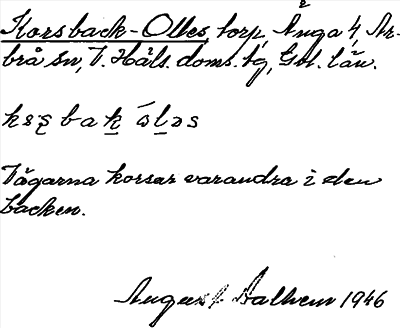 Korsback-Olles, torp, Änga 4, Ar-
brå sn, V. Häls. doms. tg, Gvl. län.
Vägarna korsar varandra i den
backen.
August Dalhem 1946